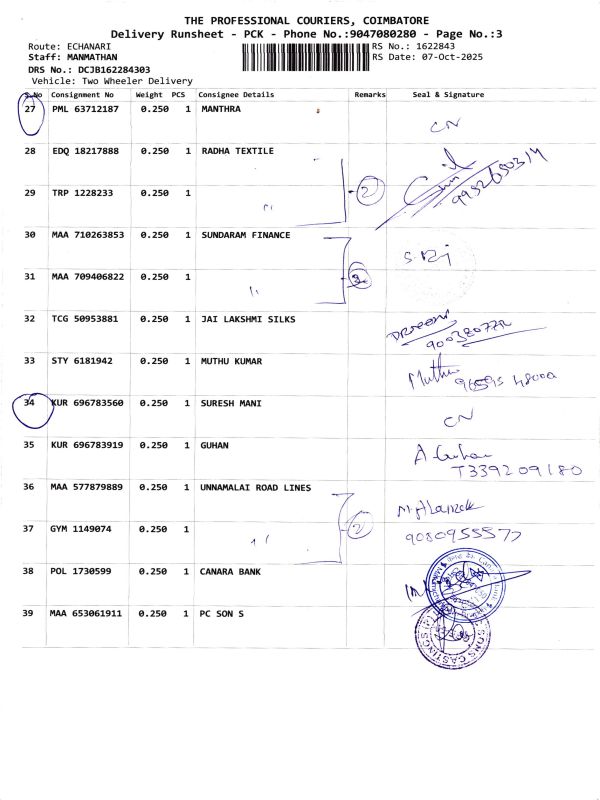 THE PROFESSIONAL COURIERS, COIMBATORE
Delivery Runsheet - PCK - Phone No.:9047080280 - Page No.:3
Route: ECHANARI RS No.: 1622843
Staff: MANMATHAN RS Date: 07-Oct-2025
DRS No.: DCJB162284303
Vehicle: Two Wheeler Delivery
S.No Consignment No Weight PCS Consignee Details Remarks Seal & Signature
27 PML 63712187 0.250 1 MANTHRA CN
28 EDQ 18217888 0.250 1 RADHA TEXTILE
29 TRP 1228233 0.250 1 " 2
30 MAA 710263853 0.250 1 SUNDARAM FINANCE
31 MAA 709406822 0.250 1 "
32 TCG 50953881 0.250 1 JAI LAKSHMI SILKS
33 STY 6181942 0.250 1 MUTHU KUMAR Muthu
34 KUR 696783560 0.250 1 SURESH MANI CN
35 KUR 696783919 0.250 1 GUHAN A. Guhan
7339209180
36 MAA 577879889 0.250 1 UNNAMALAI ROAD LINES
37 GYM 1149074 0.250 1 " 2
38 POL 1730599 0.250 1 CANARA BANK
39 MAA 653061911 0.250 1 PC SON S